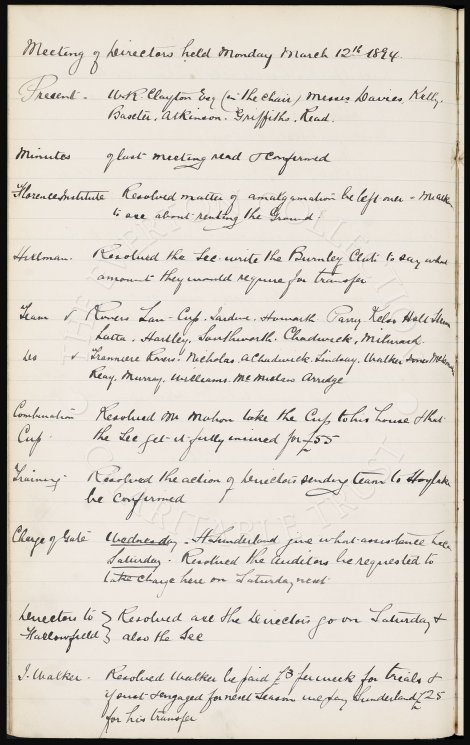 Meeting of Directors held Monday March 12th 1894.
Present - W.R. Clayton Esq (in the chair) Messrs Davies, Kelly,
Baxter, Atkinson, Griffiths, Read.
Minutes of last meeting read & confirmed
Florence Institute Resolved matter of amalgamation be left over -
to see about renting the Ground
Hillman. Resolved the Sec. write the Burnley Club to say what
amount they would require for transfer
Team v Rovers Lan. Cup. Jardine, Howarth Parry Kelso Holt Stewart
Latta. Hartley, Southworth. Chadwick, Milward
do v Tranmere Rovers. Nicholas, A Chadwick. Lindsay. Walker Jones McKinnon
Reay, Murray, Williams. McMillan Arridge
Combination Resolved Mr Mahon take the Cup to his house & that
Cup. the Sec get it fully insured for £55
Training. Resolved the action of Directors sending team to Hoylake
be confirmed
Charge of Gate Wednesday - give what assistance
Saturday - Resolved the auditors be requested to
take charge here on Saturday next
Directors to } Resolved all the Directors go on Saturday &
Hallowfield } also the Sec
J. Walker - Resolved Walker be paid £3 per week for trials &
if engaged for next season we pay Sunderland £25
for his transfer